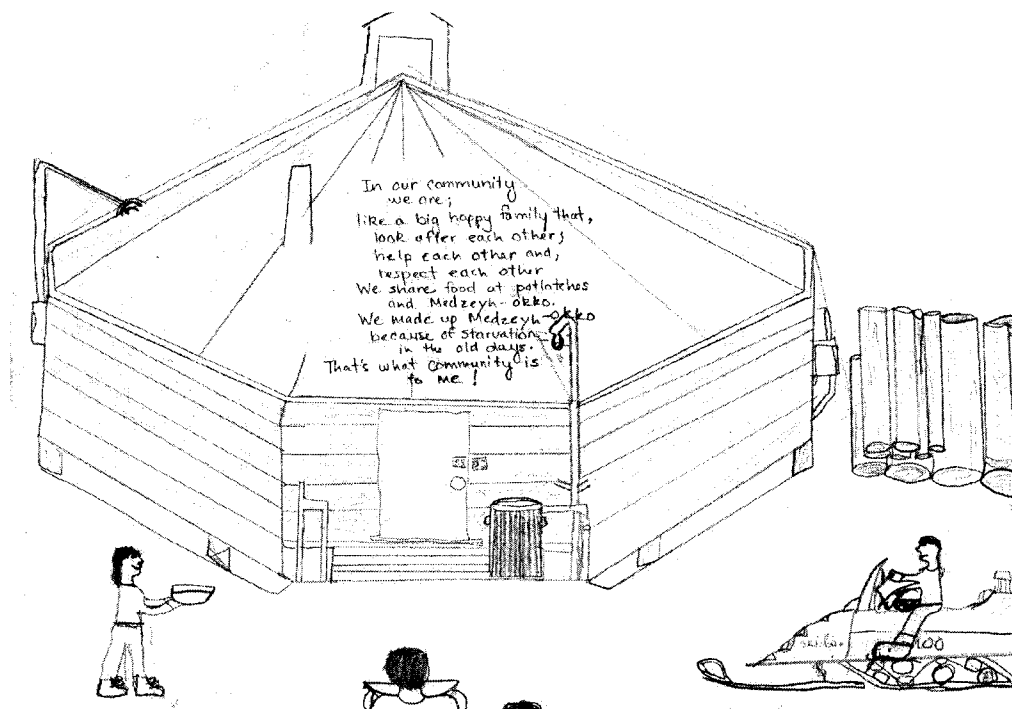 In our community
we are;
like a big happy family that,
look after each other,
help each other and,
respect each other
We share food at potlatches
and Medzeyh-okko.
We made up Medzeyh-okko
because of starvation
in the old days.
That's what community is
to me!
100